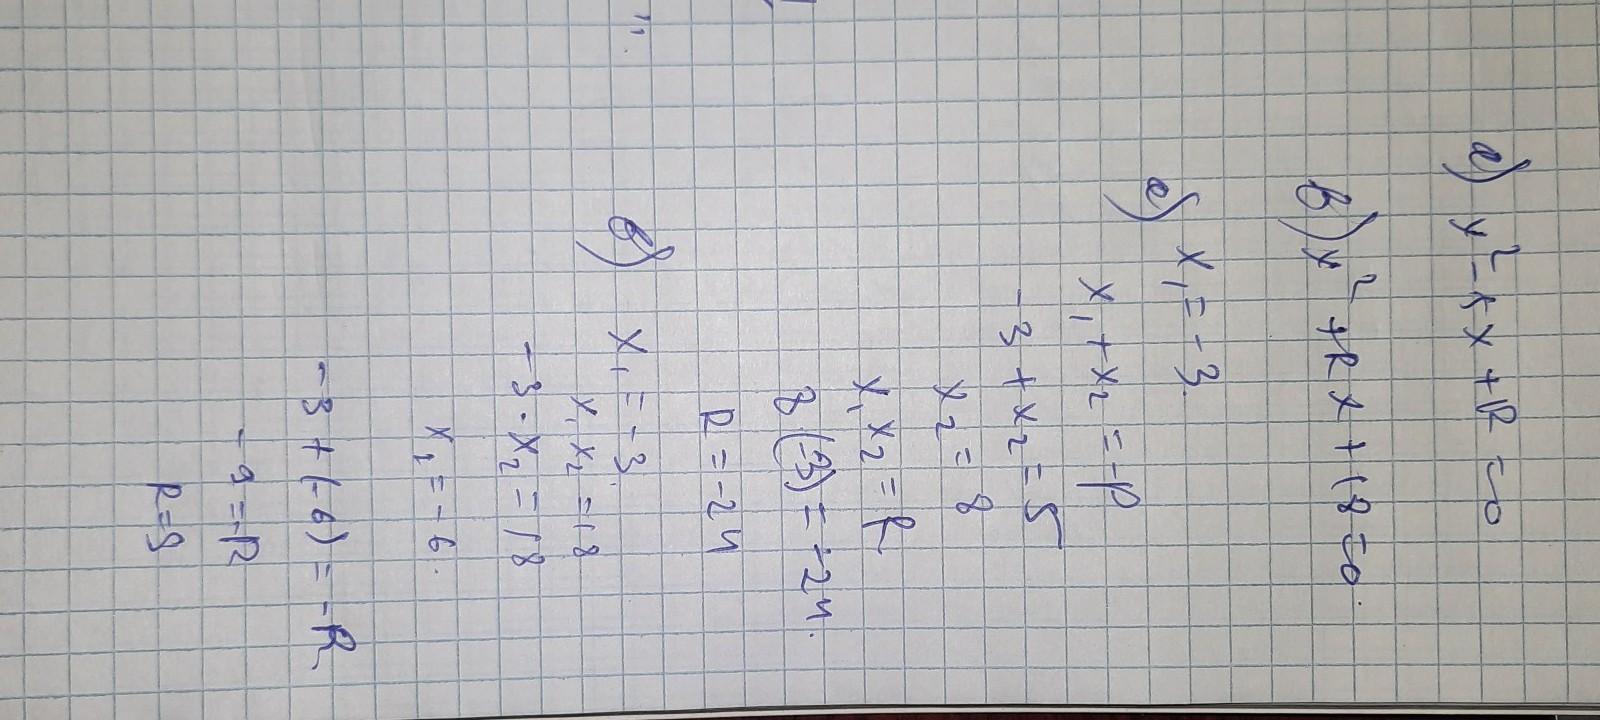 а) x² - 5x + R = 0
в) x² + R x + 18 = 0.
а) x₁ = -3.
x₁ + x₂ = -p
-3 + x₂ = 5
x₂ = 8
x₁ x₂ = R
8 (-3) = -24.
R = -24
в) x₁ = -3.
x₁ x₂ = 18
-3 · x₂ = 18
x₂ = -6.
-3 + (-6) = -R
-9 = -R
R = 9